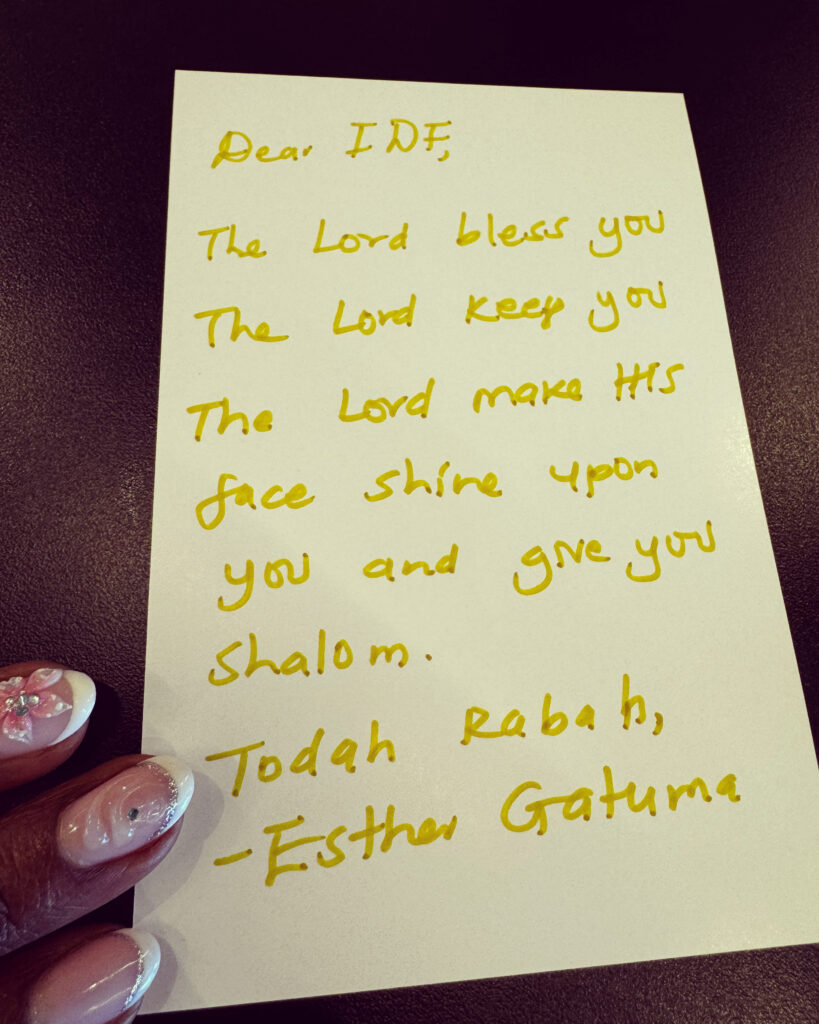 Dear IDF,
The Lord bless you
The Lord keep you
The Lord make His
face shine upon
you and give you
shalom.
Todah Rabah,
-Esther Gatuma